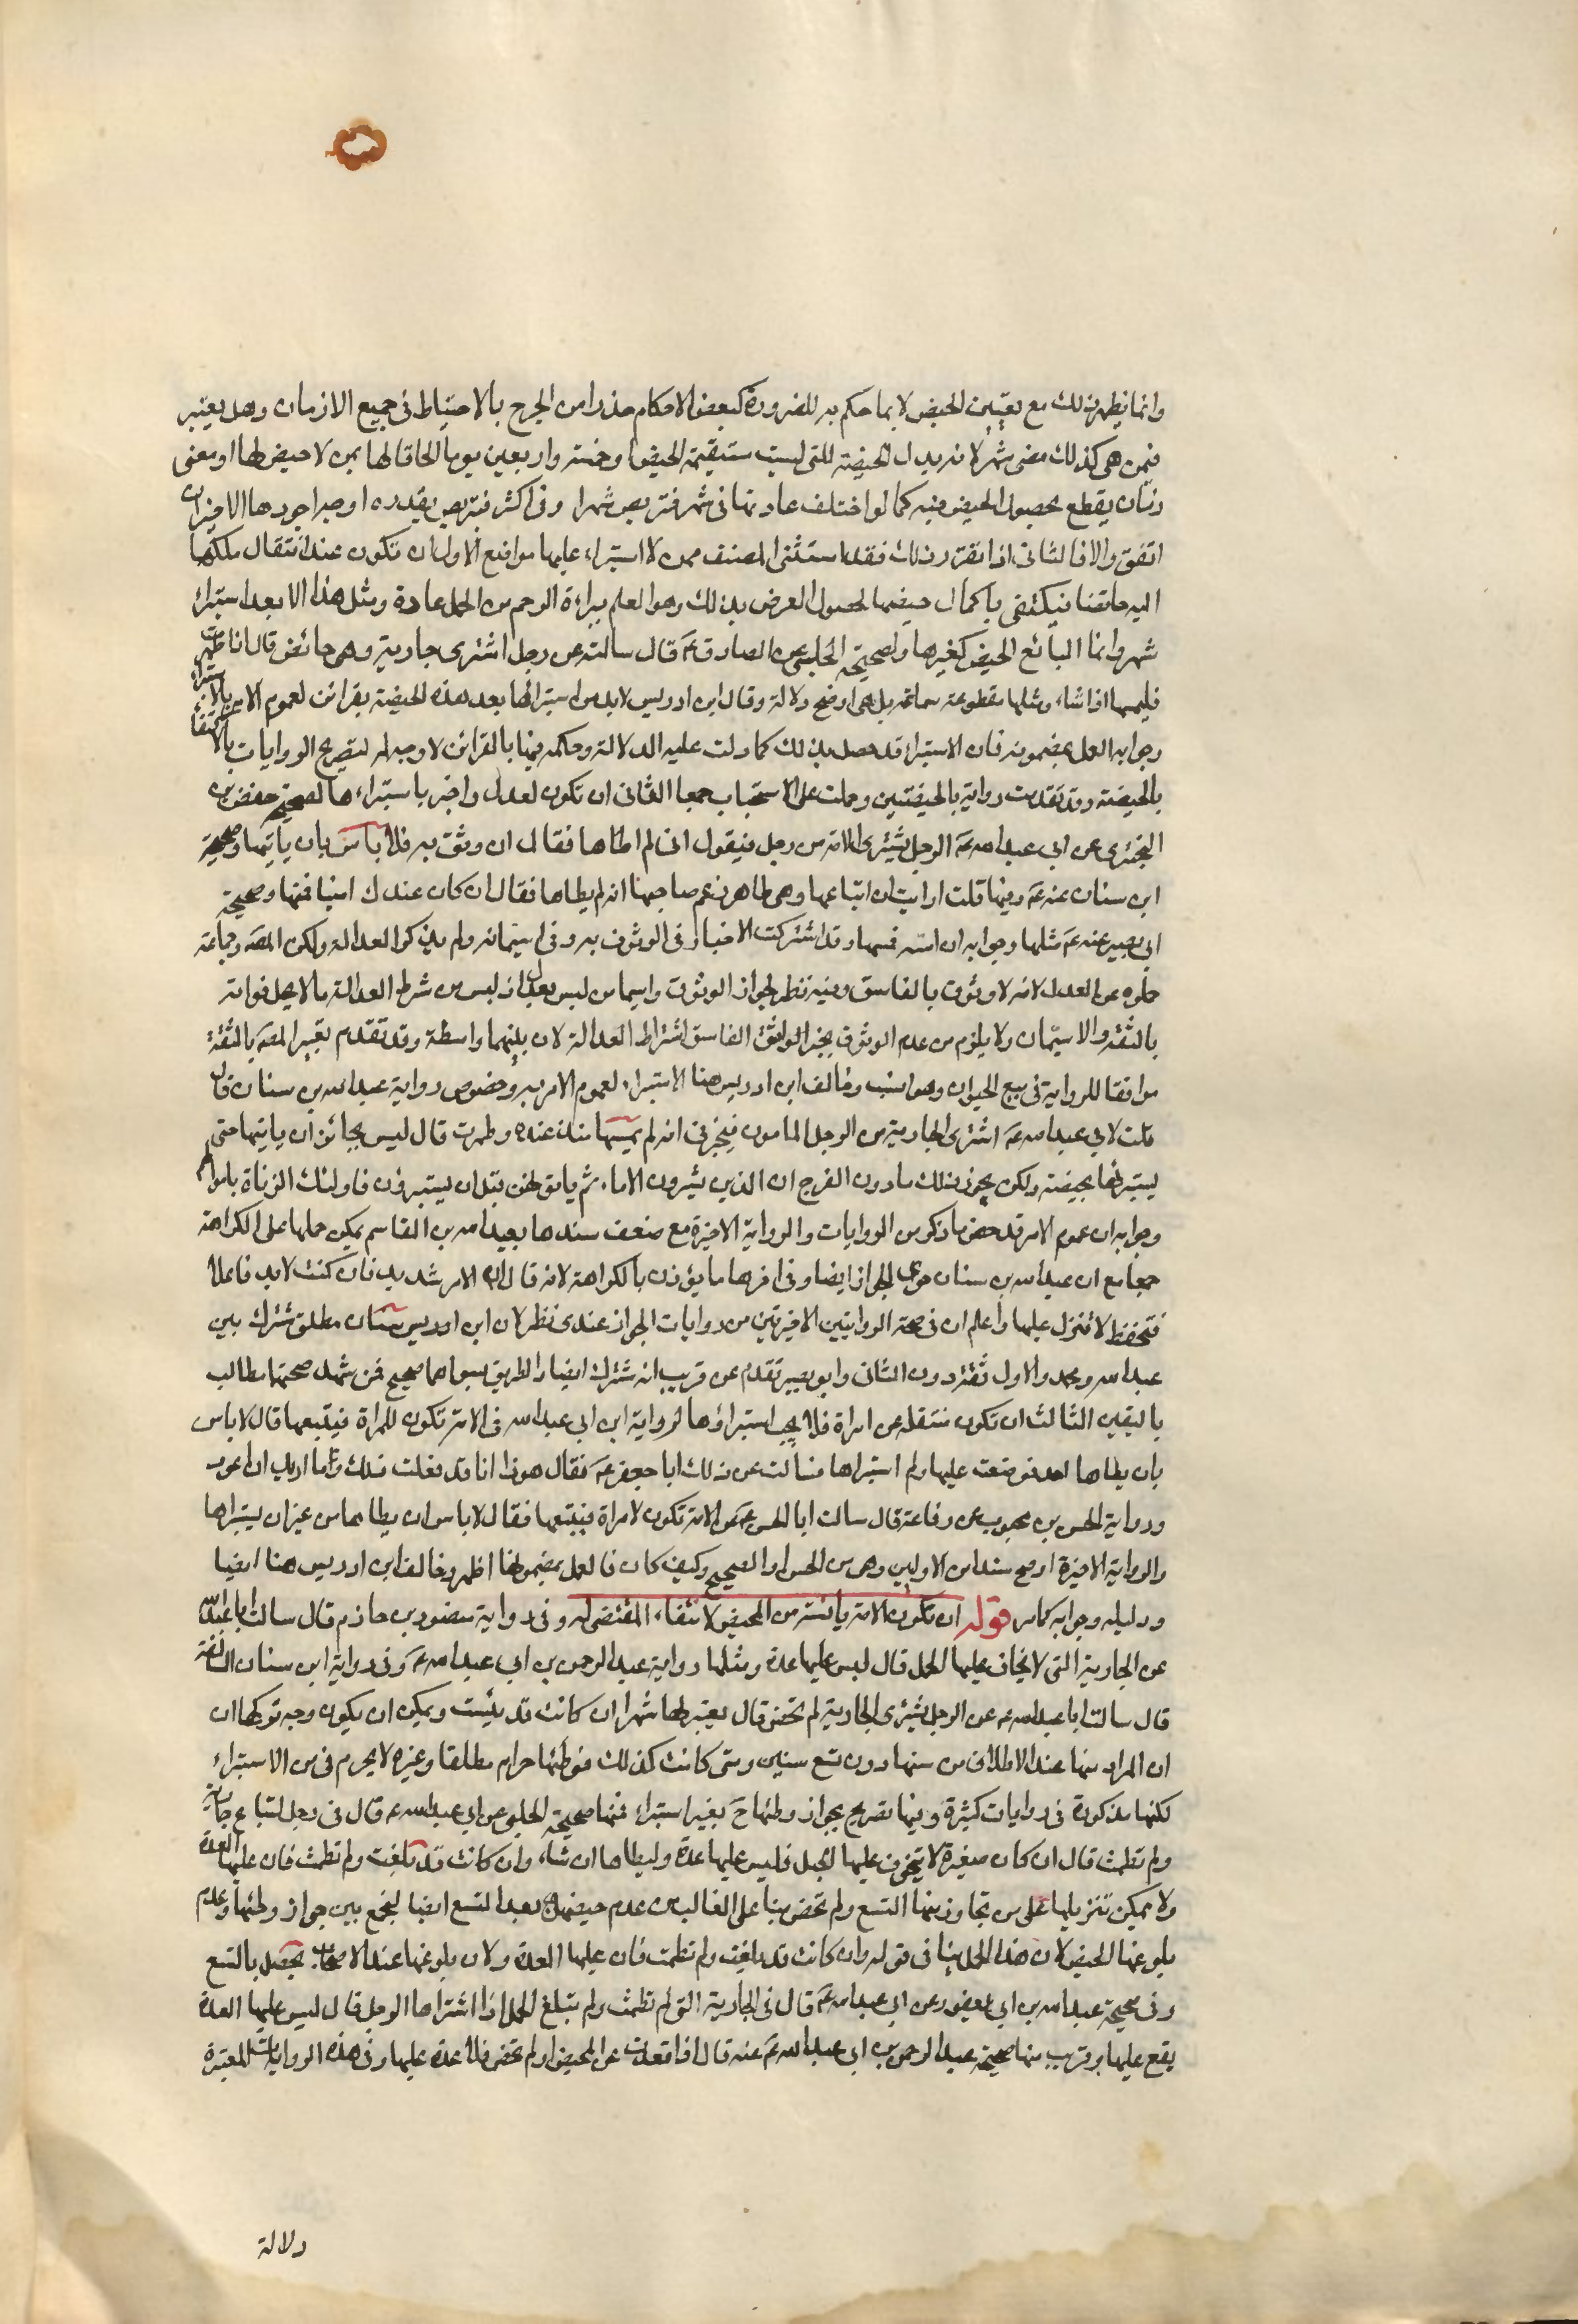 وانما يظهر ذلك مع يقين الحيض لا بما حكم به للضرورة كبعض الاحكام حذرا من الحرج بالاحتياط في جميع الازمان وهل يعتبر
فيمن هي كذلك مضى شهر لانه بدل الحيضة للتى ليست مستقيمة الحيض او خمسة واربعين يوما الحاقا لها بمن لا حيض لها او مضى
زمان يقطع بحصول الحيض فيه كما لو اختلف عادتها في شهر فتربص شهرا وفي اكثر فتربص بقدره اوجه اجودها الاخير ان
اتفق والا فالثانى اذا تقرر ذلك فقد استثنى المصنف ممن لا استبراء عليها مواضع الاول ان تكون عند انتقال ملكها
اليه حائضا فيكتفى باكمال حيضها لحصول الغرض بذلك وهو العلم ببراءة الرحم من الحمل عادة ومثل هذا لا بعد استبراء
شهر وانما البائع الحيض كغيرها ولصحيحة الحلبي عن الصادق ع قال سالته عن رجل اشترى جارية وهى حائض قال اذا طهرت
فليمسها اذا شاء ومثلها مقطوعة سماعة بل هى اوضح دلالة وقال ابن ادريس لابد من استبرائها بعد هذه الحيضة بقرائن لعموم الامر بالاستبراء
وجوابه العمل بمضمونه فان الاستبراء قد حصل بذلك كما دلت عليه الدلالة وحكمه فيها بالقرائن لا وجه له لتصريح الروايات بالاكتفاء
بالحيضة وقد تقدمت رواية بالحيضتين وحملت على الاستحباب جمعا الثانى ان تكون لعدل واخبر باستبراءها لصحيحة حفص بن
البخترى عن ابى عبد الله ع الرجل يشترى الامة من رجل فيقول انى لم اطاها فقال ان وثق به فلا باس بان ياتيها وصحيحة
ابن سنان عنه ع وفيها قلت ارايت ان ابتاعها وهى طاهر زعم صاحبها انه لم يطاها فقال ان كان عندك امينا فمسها وصحيحة
ابى بصير عنه ع مثلها وجوابه ان امنه فمسها وقد اشتركت الاخبار في الوثوق به وفي ايتمانه ولم يذكر العدالة ولكن المصه وجماعة
حملوه على العدل لانه لا وثوق بالفاسق وفيه نظر لجواز الوثوق وايتمان من ليس بعدل اذ ليس من شرط العدالة ما لا يخل فواته
بالثقة والايتمان ولا يلزم من عدم الوثوق بخبر الفاسق اشتراط العدالة لان بينهما واسطة وقد تقدم تعبير المصه بالثقة
موافقا للرواية في بيع الحيوان وهو انسب وخالف ابن ادريس هنا الاستبراء لعموم الامر به وخصوص رواية عبد الله بن سنان قال
قلت لابى عبد الله ع اشترى الجارية من الرجل المامون فيخبرنى انه لم يمسها منذ عنده وطهرت قال ليس بجائز ان ياتيها حتى
يستبرئها بحيضة ولكن يجوز ذلك ما دون الفرج ان الذين يشترون الاماء ثم ياتونهن قبل ان يستبرؤن فاولئك الزناة باموالهم
وجوابه ان عموم الامر قد خص بما ذكر من الروايات والرواية الاخيرة مع ضعف سندها بعبد الله بن القاسم يمكن حملها على الكراهة
جمعا مع ان عبد الله بن سنان روى الجواز ايضا وفي اخرها ما يؤذن بالكراهة لانه قال ان الامر شديد فان كنت لابد فاعلا
فتحفظ لا تنزل عليها واعلم ان في صحة الروايتين الاخيرتين من روايات الجواز عندى نظر لان ابن سنان مطلق مشترك بين
عبد الله ومحمد والاول ثقة دون الثانى وابو بصير تقدم عن قريب انه مشترك ايضا والطريق سواهما صحيح فمن شهد صحتها مطالب
باليقين الثالث ان تكون منتقلة من امراة فلا يجب استبراؤها لرواية ابن ابى عبد الله في الامة تكون للمراة فيبتعها قال لا باس
بان يطاها فوضعت عليها ولم استبراها فسالت عن ذلك ابا جعفر ع فقال هوذا انا قد فعلت ذلك وما اريد ان اعود
ورواية الحسن بن محبوب عن رفاعة قال سالت ابا الحسن ع عن الامة تكون لامراة فتبيعها فقال لا باس ان يطاها من غير ان يستبراها
والرواية الاخيرة اوضح سندا من الاولين وهى من الحسن او الصحيح وكيف كان فالعمل بمضمونها اظهر وخالف ابن ادريس هنا ايضا
ودليله وجوابه كما مر قوله ان تكون الامة يائسة من المحيض لانتفاء المقتضى له وفي رواية منصور بن حازم قال سالت ابا عبد الله
عن الجارية التى لا يخاف عليها الحمل قال ليس عليها عدة ومثلها رواية عبد الرحمن بن ابى عبد الله ع وفي رواية ابن سنان السالفة
قال سالت ابا عبد الله ع عن الرجل يشترى الجارية لم تحض قال يعتزلها شهرا ان كانت قد يئست ويمكن ان يكون وجه تركها ان
ان المراد منها عند الاطلاق من سنها دون تسع سنين ومتى كانت كذلك فوطئها حرام مطلقا وغيره لا يحرم في من الاستبراء
لكنها مذكورة في روايات كثيرة وفيها تصريح بجواز وطئها ح بغير استبراء فمنها صحيحة الحلبى عن ابى عبد الله ع قال في رجل ابتاع جارية
ولم تطمث قال ان كان صغيرة لا يتخوف عليها الحبل فليس عليها عدة وليطاها ان شاء وان كانت قد بلغت ولم تطمث فان عليها العدة
ولا يمكن تنزيلها على من تجاوز سنها التسع ولم تحض بناء على الغالب من عدم حيضهن بعد التسع ايضا ليجمع بين جواز وطئها وعدم
بلوغها الحيض لان هذا الحمل ينافى قوله وان كانت قد بلغت ولم تطمث فان عليها العدة ولان بلوغها عند الاصحاب يحصل بالتسع
وفي صحيحة عبد الله بن ابى يعفور عن ابى عبد الله ع قال في الجارية التى لم تطمث ولم تبلغ الحمل اذا اشتراها الرجل قال ليس عليها العدة
يقع عليها وقريب منها صحيحة عبد الرحمن بن ابى عبد الله ع عنه قال اذا قعدت عن المحيض او لم تحض فلا عدة عليها وفي هذه الروايات المعتبرة
دلالة